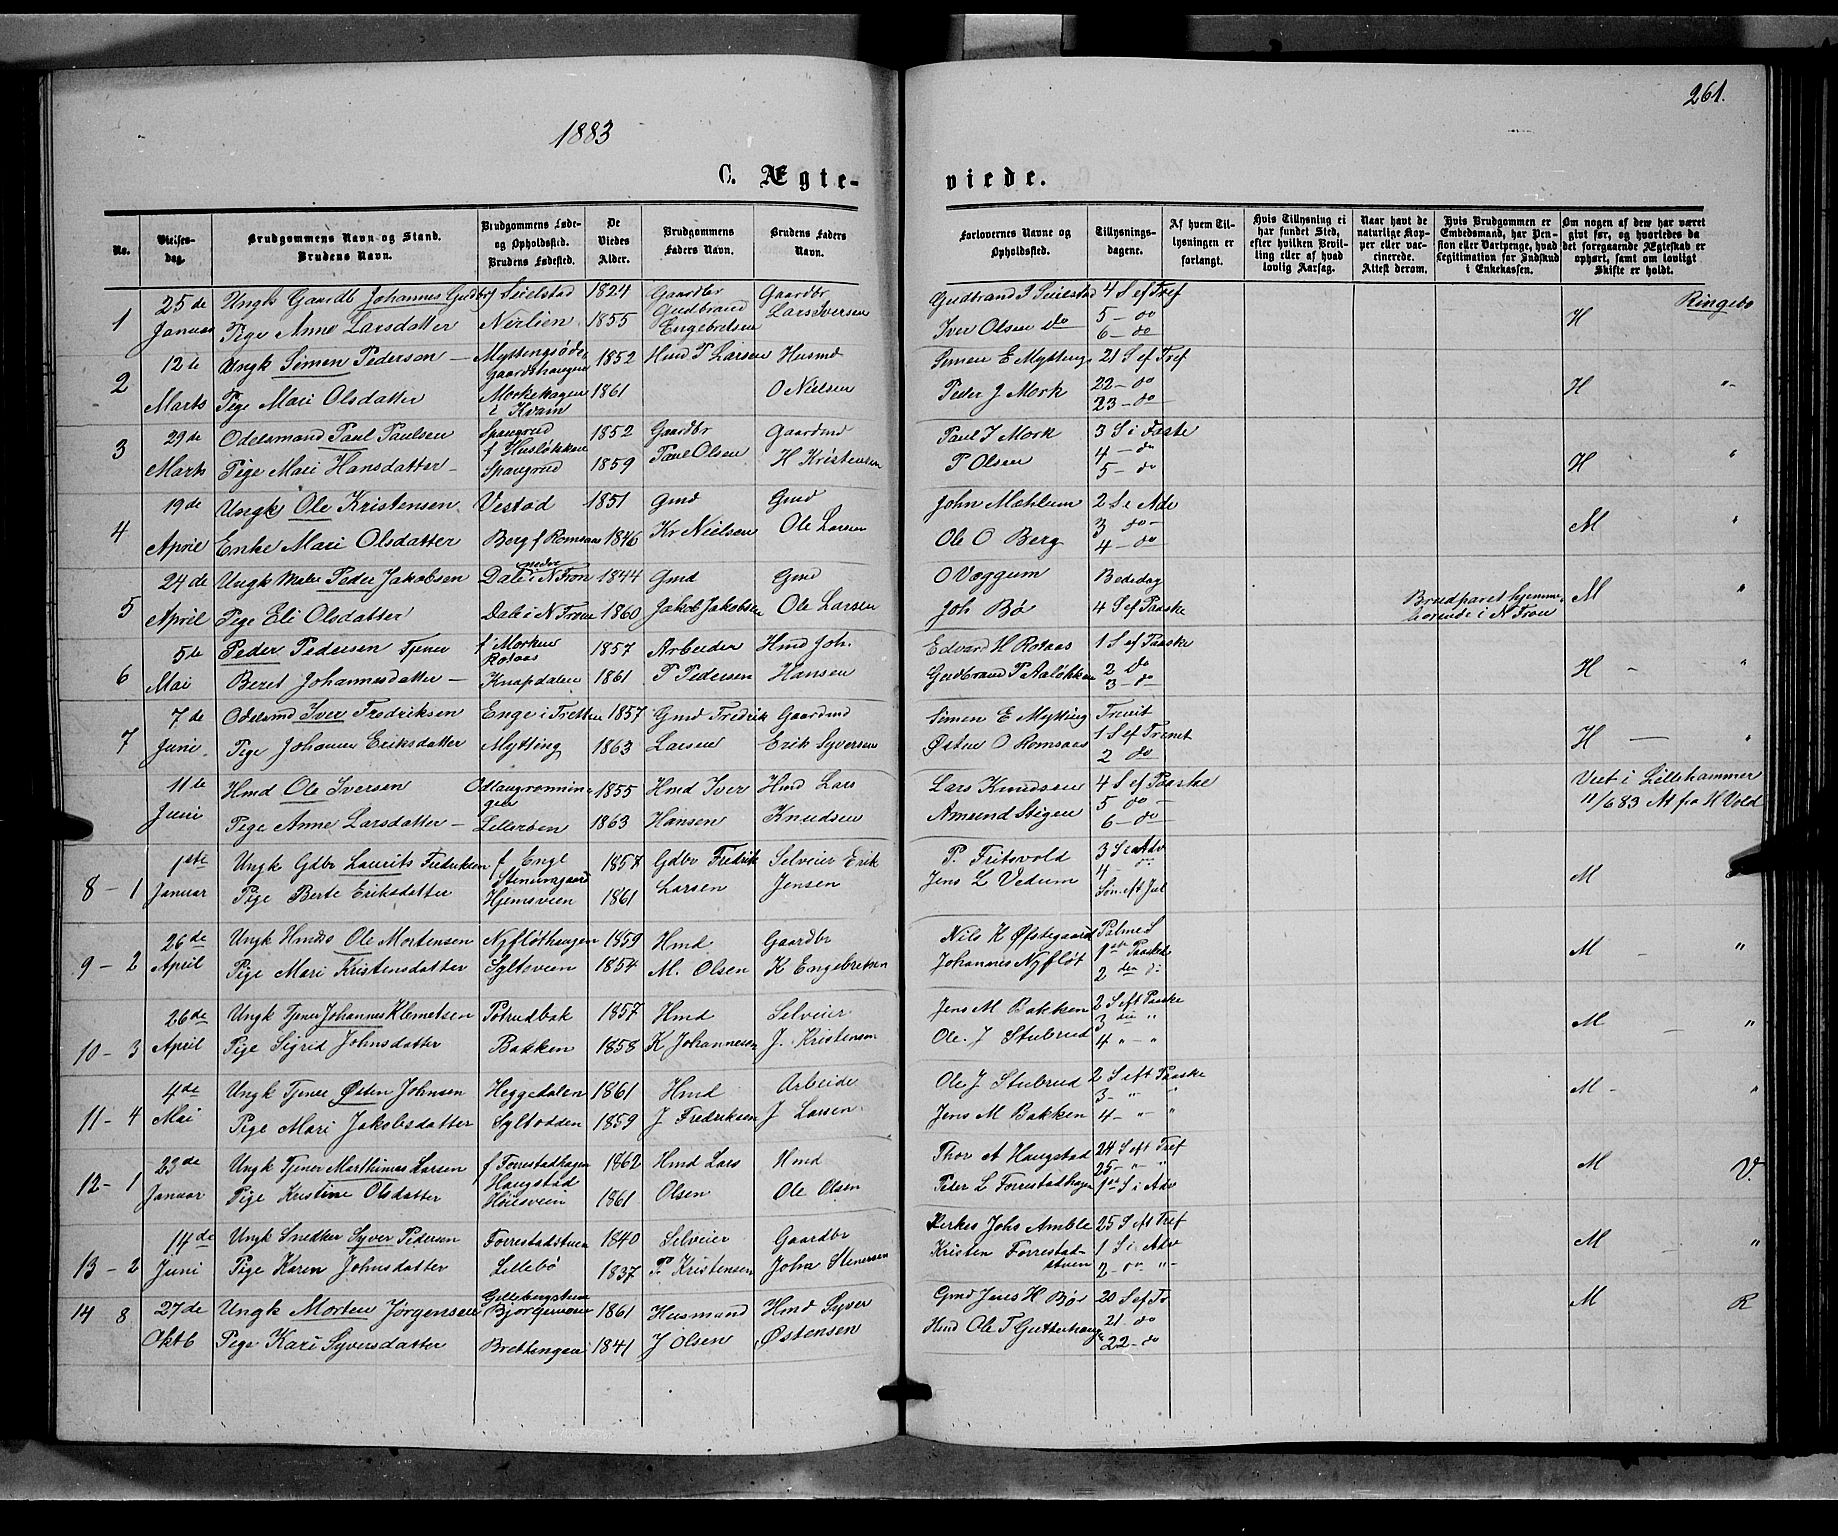 261.
1883
C. Ægte-
viede.
No.
Vielses-
dag.
Brudgommens Navn og Stand.
Brudens Navn.
Brudgommens Føde-
og Opholdssted.
Brudens Fødested.
De
Viedes
Alder.
Brudgommens
Faders Navn.
Brudens Faders
Navn.
Forlovernes Navne og
Opholdssted.
Tillysnings-
dagene.
Af hvem Til-
lysningen er
forlangt.
Hvis Tillysning ei
har fundet Sted,
efter hvilken Bevil-
ling eller af hvad
lovlig Aarsag.
Naar havt de
naturlige Kop-
per eller vac-
cinerede.
Attest derom.
Hvis Brudgommen er
Embedsmand, har Pen-
sion eller Vartpenge, hvad
Legitimation for Indskud
i Enkekassen.
Om nogen af dem har været
gift før, og hvorledes da
det foregaaende Ægteskab er
ophørt, samt om lovligt
Skifte er holdt.
1 25de Ungk Gaardb Johannes Gudbr f Seielstad 1824 Gaardbr Gaardbr Gudbrand J Seielstad 4 S ef Tref Ringebo
Januar Pige Anne Larsdatter Nerlien 1855 Gudbrand Engebretsen Lars Iversen Iver Olsen do 5 - do H
6 - do
2 12te Ungk Simen Pederson Myttengsøde Gaardshaugen 1852 Hmd P Larsen Husmd Simen E Mytting 21 S ef Tref
Marts Pige Mari Olsdatter Morkehagen i Kvam 1861 O Nielsen Peder J Mork 22 - do H "
23 - do
3 29de Odelsmand Paul Paulsen Spangrud f Husløkken 1852 Gaardbr Gaardmd Paul J Mork 3 S i Faste
Marts Pige Mari Hansdatter Spangrud 1859 Paul Olsen H Kristensen P Olsen 4 - do H "
5 - do
4 19de Ungk Ole Kristensen Vestad 1851 Gmd Gmd John Mæhlum 2 S e Ade
April Enke Mari Olsdatter Berg f Romsaas 1846 Kr Nielsen Ole Larsen Ole O Berg 3 do - M "
4 - do
5 24de Ungk Maler Peder Jakobsen Dale nedre i N Fron 1844 Gmd Gmd O Væggum Bededag
April Pige Eli Olsdatter Dale i N Fron 1860 Jakob Jakobsen Ole Larsen Joh Bø 4 S ef Paaske Brudparet hjemme- hørende i N Fron M "
6 5te Peder Pedersen Tjener f Morken Rotaas 1857 Arbeider Hmd Joh. Edvard H Rotaas 1 S ef Paaske
Mai Beret Johannesdatter Knapdalen 1861 P Pedersen Hansen Gudbrand P Aaløkken 2 do H "
3 - do
7 7de Odelsmd Iver Fredriksen Enge i Tretten 1857 Gmd Fredrik Gaardmd Simen E Mytting Trenit
Juni Pige Johanne Eriksdatter Mytting 1863 Larsen Erik Syversen Østen O Romsaas 1 S ef Trenit H "
2 do
11te Hmd Ole Iversen Odlaugrønningen 1855 Hmd Iver Hmd Lars Lars Knudsen 4 S ef Paaske Viet i Lillehammer
Juni Pige Anne Larsdatter Lillerøen 1863 Hansen Knudsen Amund Stigen 5 do - 11/6 83 At fra H Vold
6 - do
8 - 1 1ste Ungk Gdbr Laurits Fredriksen f Enge 1858 Gdbr Fredrik Selveier Erik P. Fritsvold 3 S e Adv
Januar Pige Berte Eriksdatter Stenumgaard Hjemsveen 1861 Larsen Jensen Jens L Vedum 4 - M
Søn eft Jul
9 - 2 26de Ungk Hmds Ole Mortensen Nyfløthaugen 1859 Hmd Gaardbr Nils K Øfstegaard Palme S
April Pige Mari Kristensdatter Sylteveen 1854 M. Olsen K Engebretsen Johannes Nyfløt 1ste Paaskd M "
2den d:
10 - 3 26de Ungk Tjener Johannes Klemetsen Potrudbak 1857 Hmd Selveier Jens M Bakken 2 S eft Paaske
April Pige Sigrid Johnsdatter Bakken 1858 K Johannesen J. Kristensen Ole J Stubrud 3 die " M "
4 " - "
11 - 4 4de Ungk Tjener Østen Johnsen Heggedalen 1861 Hmd Arbeide Ole J Stubrud 2 S eft Paaske
Mai Pige Mari Jakobsdatter Syltodden 1859 J Fredriksen J Larsen Jens M Bakken 3 - " " M "
4 - " - "
12 - 1 23de Ungk Tjener Marthinus Larsen f Forrestadhagen 1862 Hmd Lars Hmd Thor A Haugstad 24 S eft Tref
Januar Pige Kristine Olsdatter Haugstad Høisveen 1861 Olsen Ole Olsen Peder L Forrestadhagen 25 - " - " M V.
1ste S i Adv
13 - 2 14de Ungk Snedker Syver Pedersen Forrestadstuen 1840 Selveier Gaardbr Kirkes Johs Amble 25 S eft Tref
Juni Pige Karen Johnsdatter Lillebø 1837 P. Kristensen John Stenersen Kristen Forrestad- stuen 1 S i Adv M "
2 - do " -
14 8 27de Ungk Morten Jørgensen Gillebergstuen Bjørgemoen 1861 Husmand Hmd Syver Gmd Jens H Bør 20 S ef To
Oktb Pige Kari Syversdatter Brettingen 1841 J Olsen Østensen Hmd Ole T Gutterhaugen 21 - do M R
22 - do